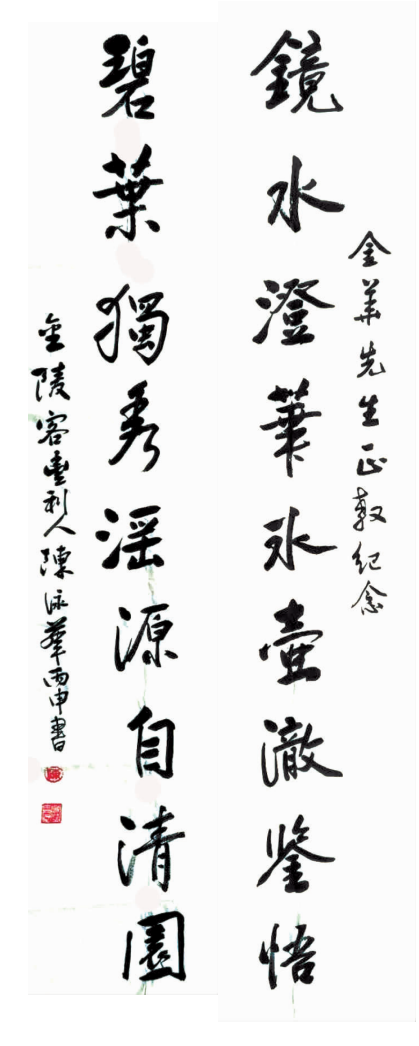 金華先生正教纪念
鏡水澄華氷壺澈鉴悟
碧葉獨秀滛源自清園
金陵客利人陳詠華丙申書